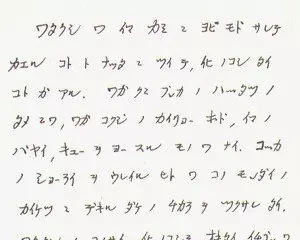 ワタクシ ワ イマ カミ ニ ヨビ モド サレテ
カエル コト ト ナッタ ニ ツイテ, イヒ ノコシ タイ
コト ガ アル. ワガ クニ ブンカ ノ ハッタツ ノ
タメ ニワ, ワガ コクジ ノ カイリョー ホド, イマ ノ
バヤイ, キューヲ ヨースル モノ ワ ナイ. コッカ
ノ ショーライ ヲ ウレイル ヒト ワ コノ モンダイ ノ
カイケツ ニ デキル ダケ ノ チカラヲ ツクサレ タイ.